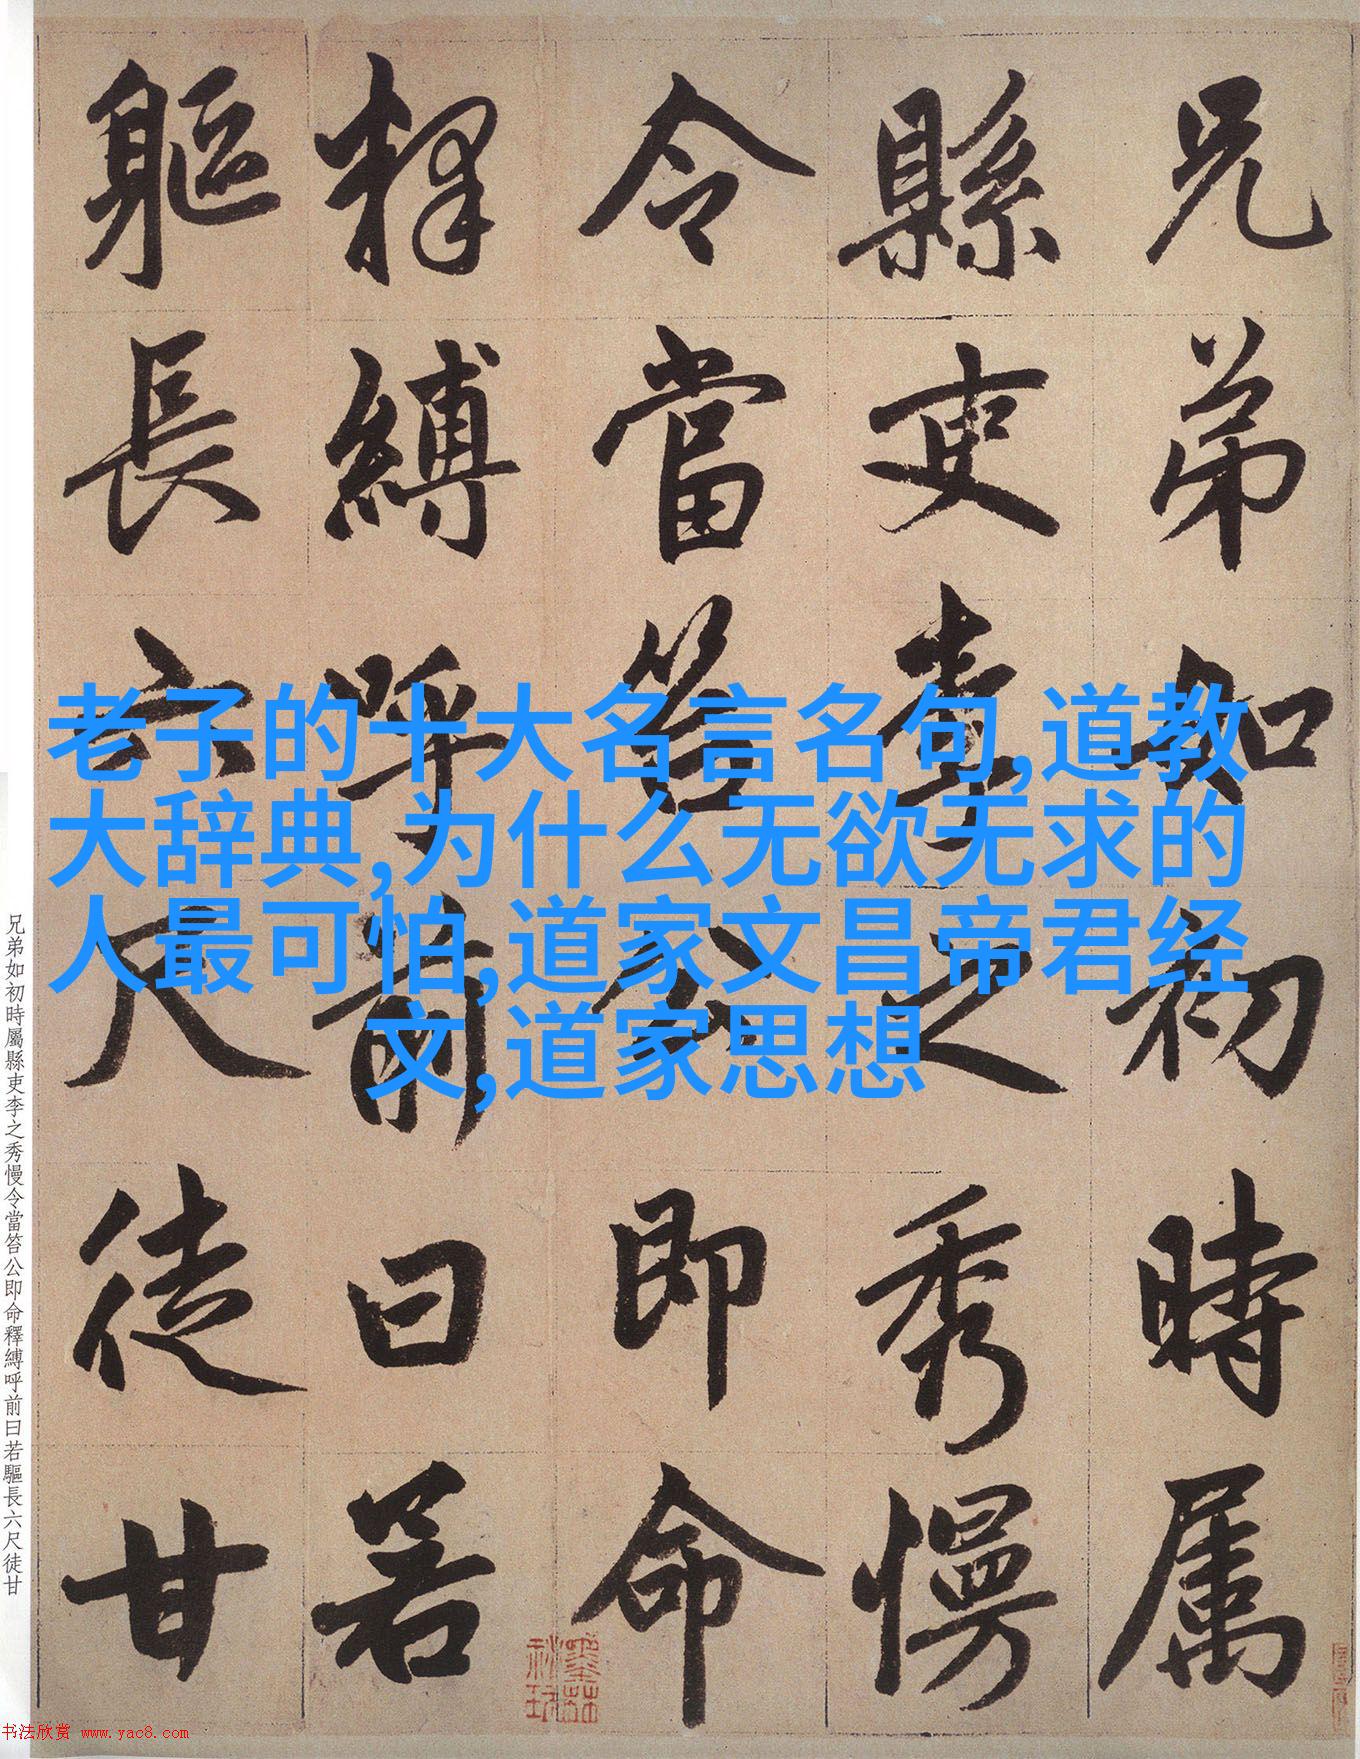 兄弟如初時属
縣吏李之秀慢
令當笞公即命
釋縛呼前曰若
軀長六尺徒甘
老子的十大名言名句,道教
大辞典,为什么无欲无求的
人最可怕,道家文昌帝君经
文,道家思想
兄弟如初時屬縣吏李之秀慢令當笞公即命釋縛呼前曰若驅長六尺徒甘
书法欣赏 www.yac8.com